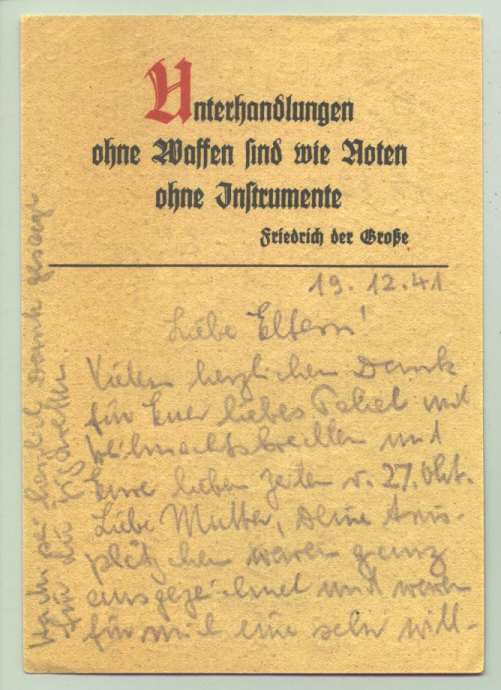 Unterhandlungen
ohne Waffen sind wie Noten
ohne Instrumente
Friedrich der Große
19.12.41
Liebe Eltern!
Vielen herzlichen Dank
für Euer liebes Paket mit
und
Eure lieben Zeilen v. 27. Okt.
Liebe Mutter, Deine Anis-
plätzchen waren ganz
ausgezeichnet und waren
für mich eine sehr will-
sei herzlich Dank gesagt
für die